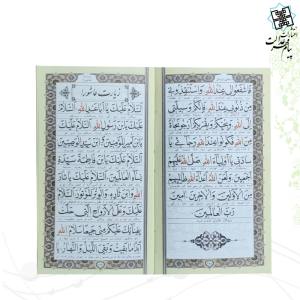 زیارت عاشورا
اَلسَّلامُ عَلَیْکَ یا اَبا عَبْدِ اللهِ اَلسَّلامُ
عَلَیْکَ یَا بْنَ رَسُولِ اللهِ اَلسَّلامُ عَلَیْکَ
یَا بْنَ اَمیرِ الْمُؤْمِنینَ وَابْنَ سَیِّدِ الْوَصِیّینَ
اَلسَّلامُ عَلَیْکَ یَا بْنَ فاطِمَةَ سَیِّدَةِ
نِساءِ الْعالَمینَ اَلسَّلامُ عَلَیْکَ یا ثارَ
اللهِ وَابْنَ ثارِهِ وَالْوِتْرَ الْمَوْتُورَ اَلسَّلامُ
عَلَیْکَ وَعَلَى الْاَرْواحِ الَّتی حَلَّتْ
بِفِنائِکَ عَلَیْکُمْ مِنّی جَمیعًا سَلامُ اللهِ
اَبَدًا ما بَقیتُ وَبَقِیَ اللَّیْلُ وَالنَّهارُ یا
فَاشْفَعُوا لی عِنْدَ اللهِ وَاسْتَنْقِذُونی
مِنْ ذُنُوبی عِنْدَ اللهِ فَاِنَّکُمْ وَسیلَتی
اِلَى اللهِ وَبِحُبِّکُمْ وَبِقُرْبِکُمْ اَرْجُو نَجاةً
مِنَ اللهِ فَکُونُوا عِنْدَ اللهِ رَجائی یا
سادَتی یا اَوْلِیاءَ اللهِ صَلَّى اللهُ عَلَیْهِمْ
اَجْمَعینَ وَلَعَنَ اللهُ اَعْداءَ اللهِ ظالِمیهِمْ
مِنَ الْاَوَّلینَ وَالْآخِرینَ آمینَ
رَبَّ الْعالَمینَ